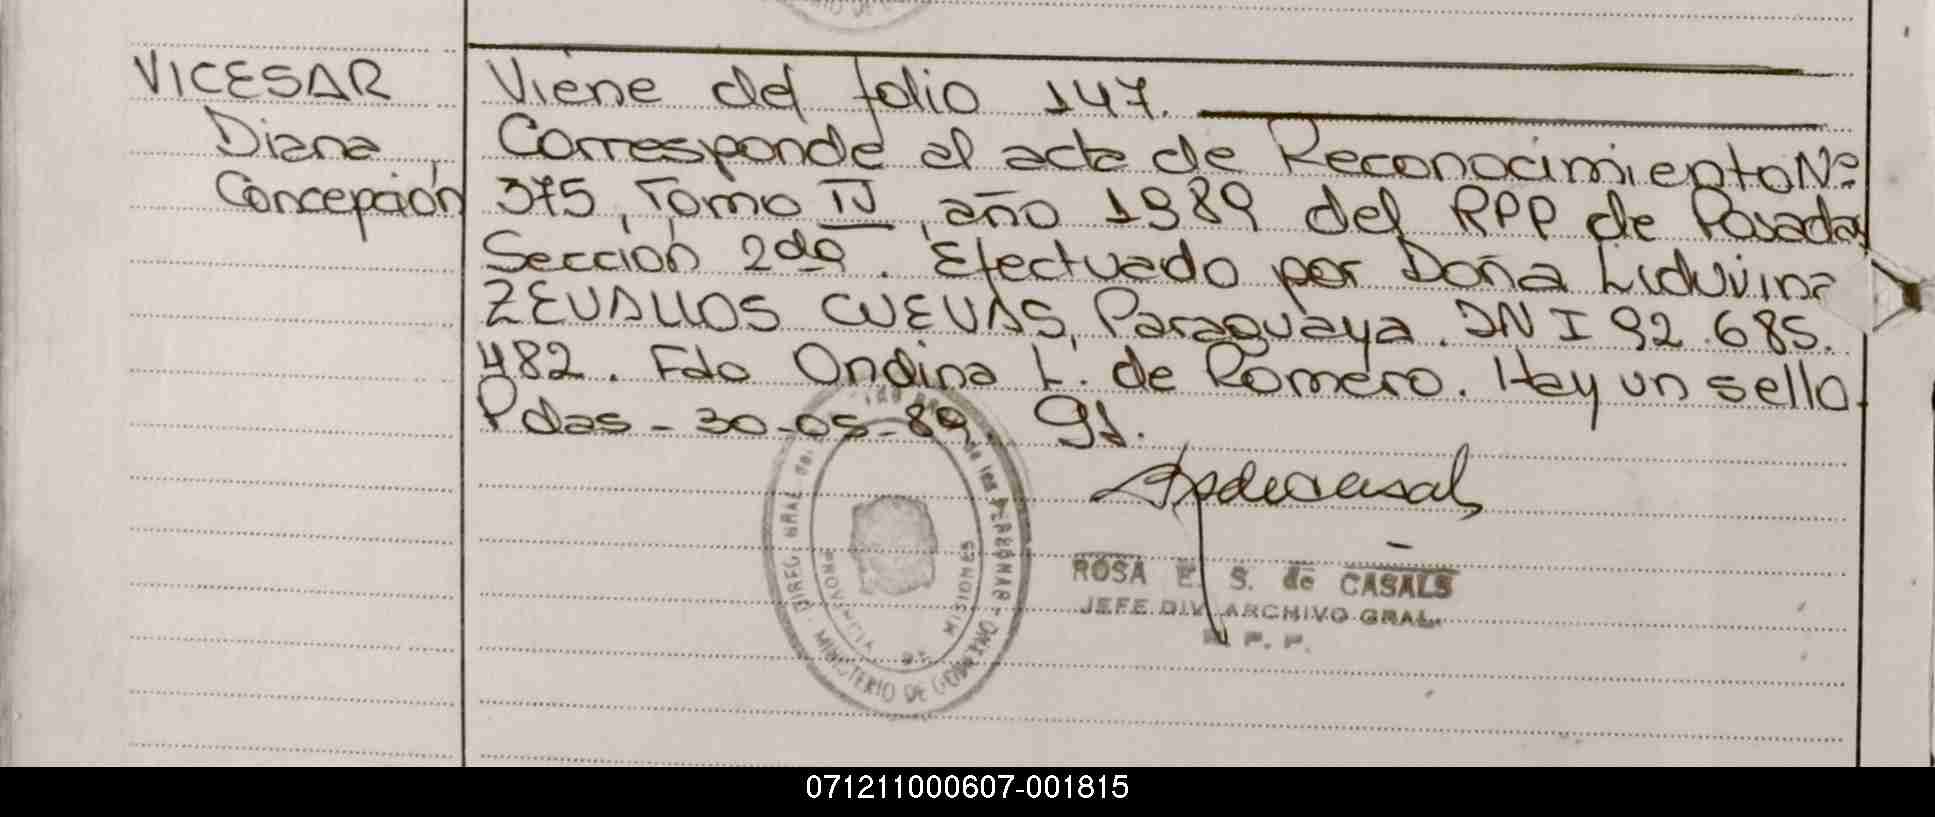 VICESAR
Diana
Concepción
Viene del folio 147.
Corresponde al acta de Reconocimiento Nº
375, Tomo II, año 1989 del RPP de Posadas
Sección 2da. Efectuado por Doña Liduvina
ZEVALLOS CUEVAS, Paraguaya. DNI 92.685.
482. Fdo Ondina L. de Romero. Hay un sello.
Pdas - 30-05-89.
ROSA E. S. de CASALS
JEFE DIV. ARCHIVO GRAL.
R. P. P.
DIREC. GRAL del
de las PERSONAS
MINISTERIO DE GOBIERNO
PROVINCIA DE
MISIONES
071211000607-001815